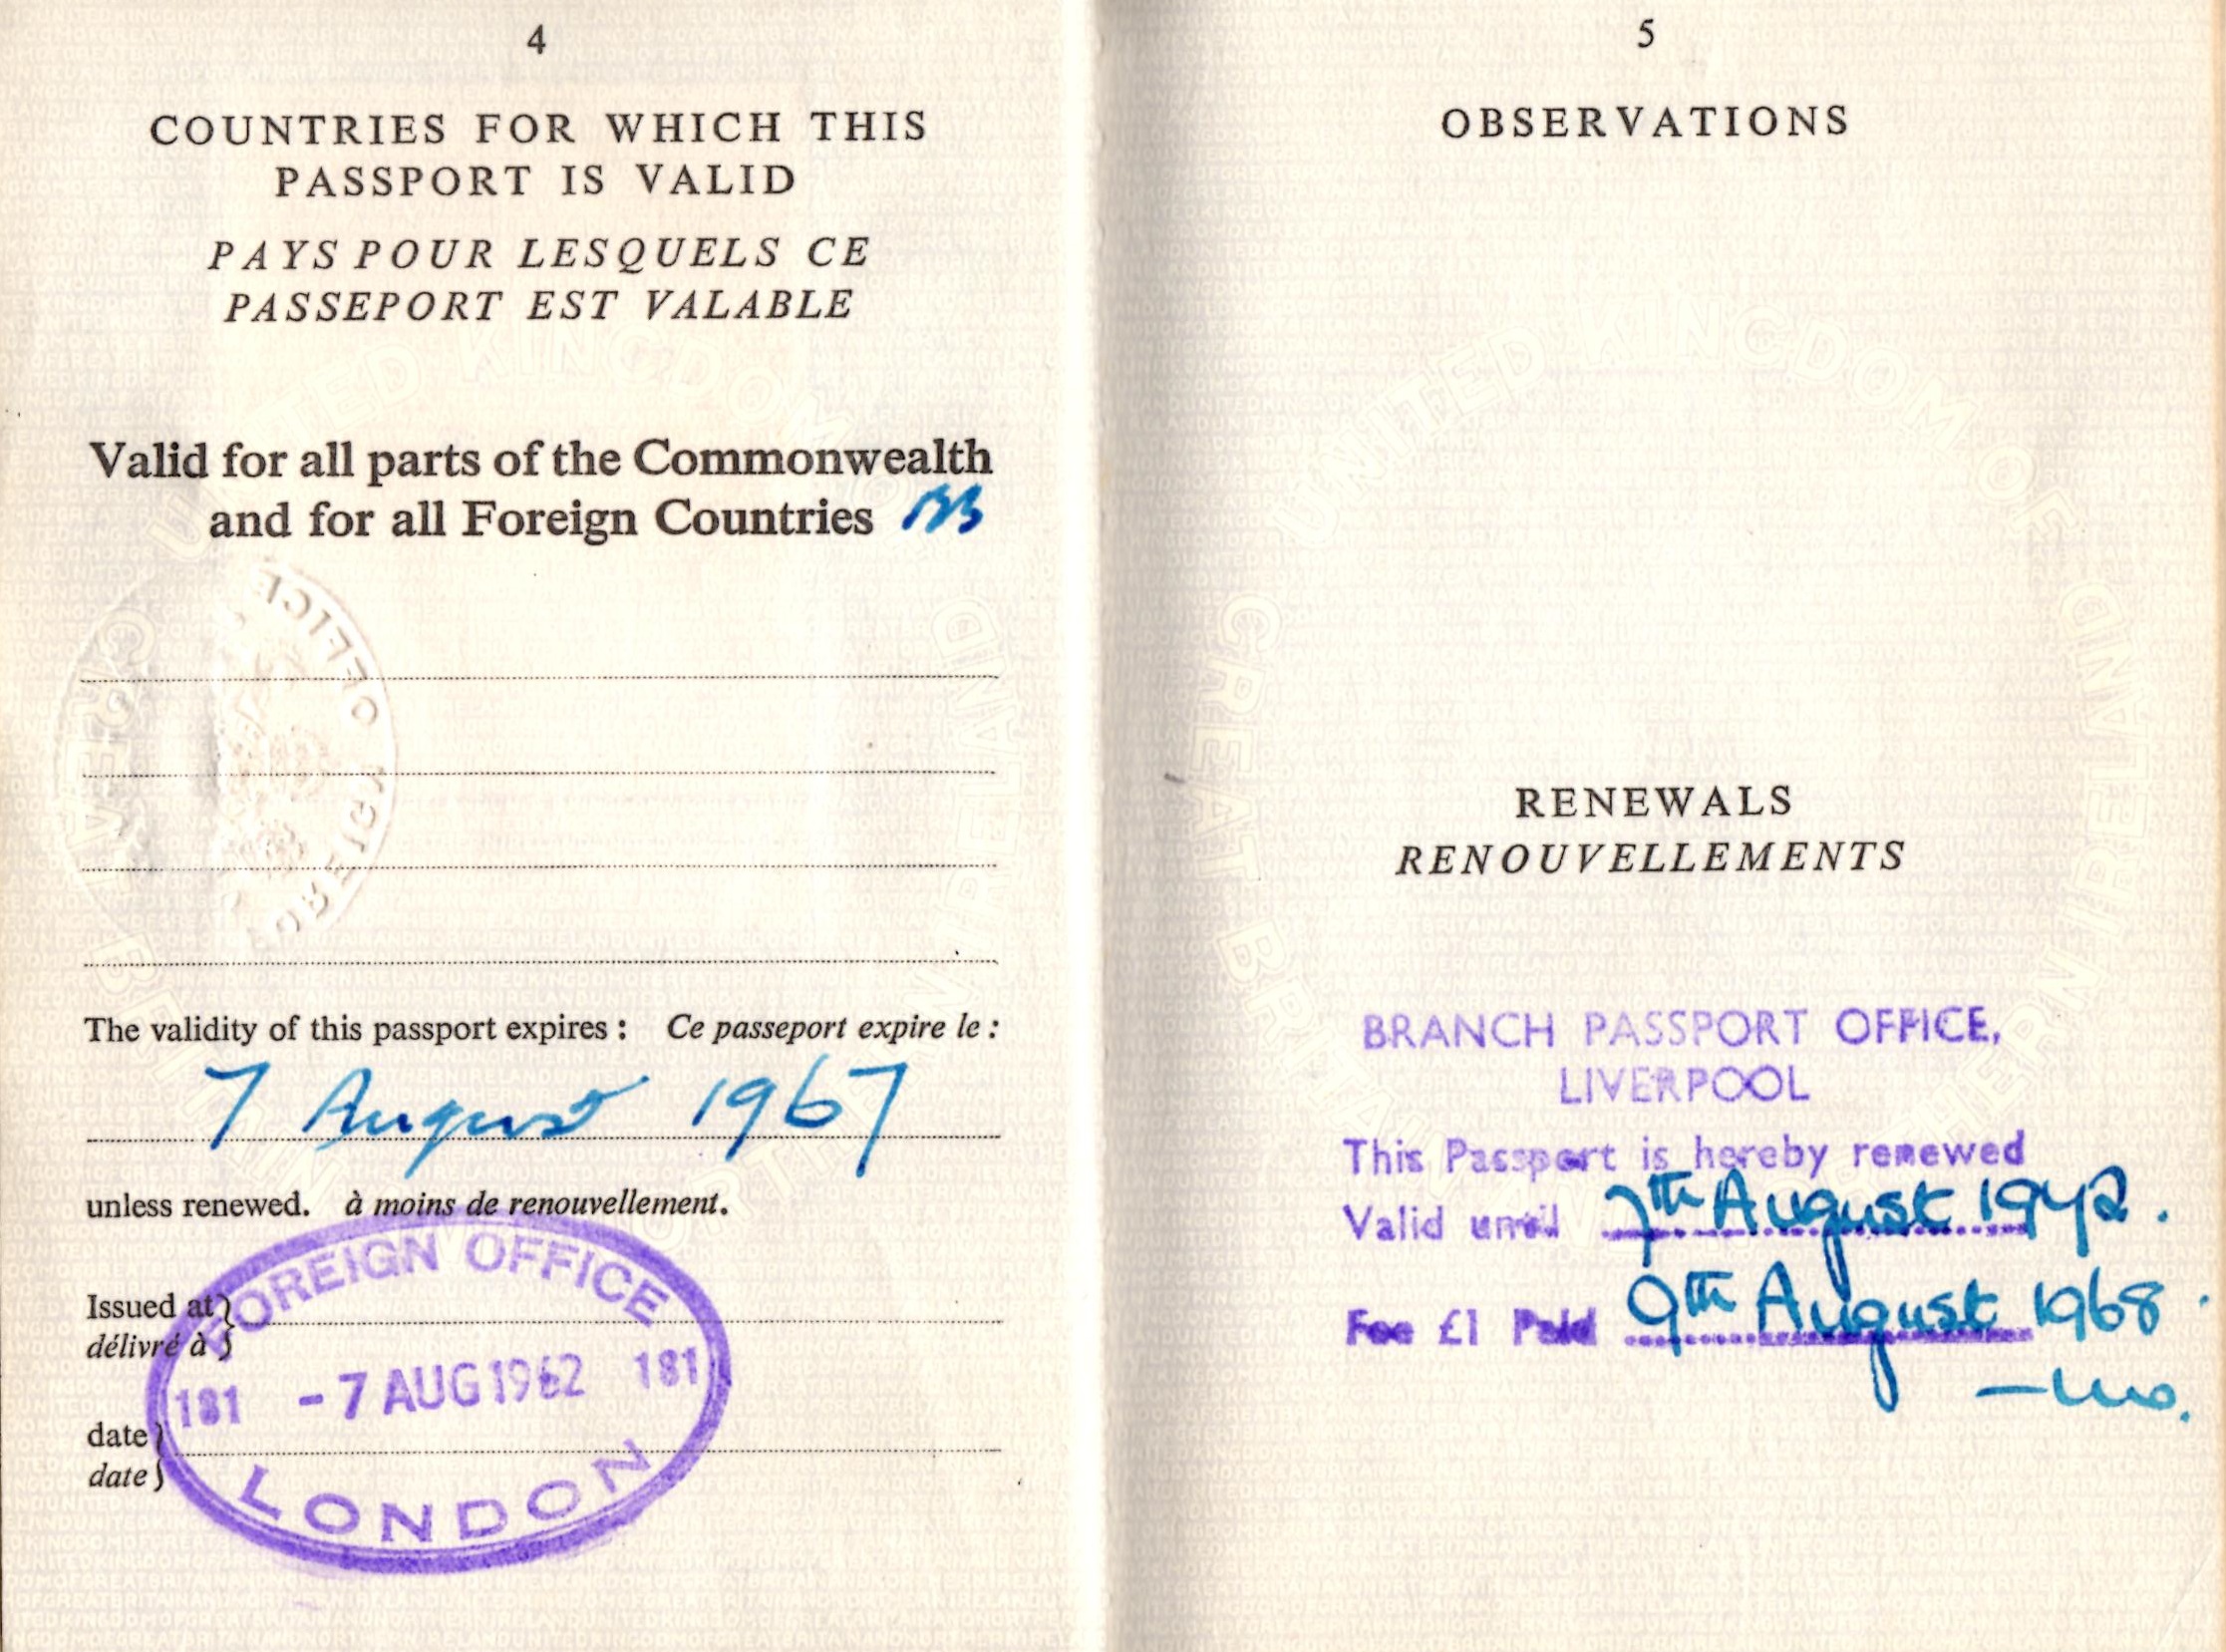 4
COUNTRIES FOR WHICH THIS
PASSPORT IS VALID
PAYS POUR LESQUELS CE
PASSEPORT EST VALABLE
Valid for all parts of the Commonwealth
and for all Foreign Countries
FOREIGN OFFICE
The validity of this passport expires : Ce passeport expire le :
7 August 1967
unless renewed. à moins de renouvellement.
Issued at
délivré à
date
date
FOREIGN OFFICE
181 -7 AUG 1962 181
LONDON
5
OBSERVATIONS
UNITED KINGDOM OF
GREAT BRITAIN AND NORTHERN IRELAND
RENEWALS
RENOUVELLEMENTS
BRANCH PASSPORT OFFICE,
LIVERPOOL
This Passport is hereby renewed
Valid until 7th August 1972.
Fee £1 Paid 9th August 1968.